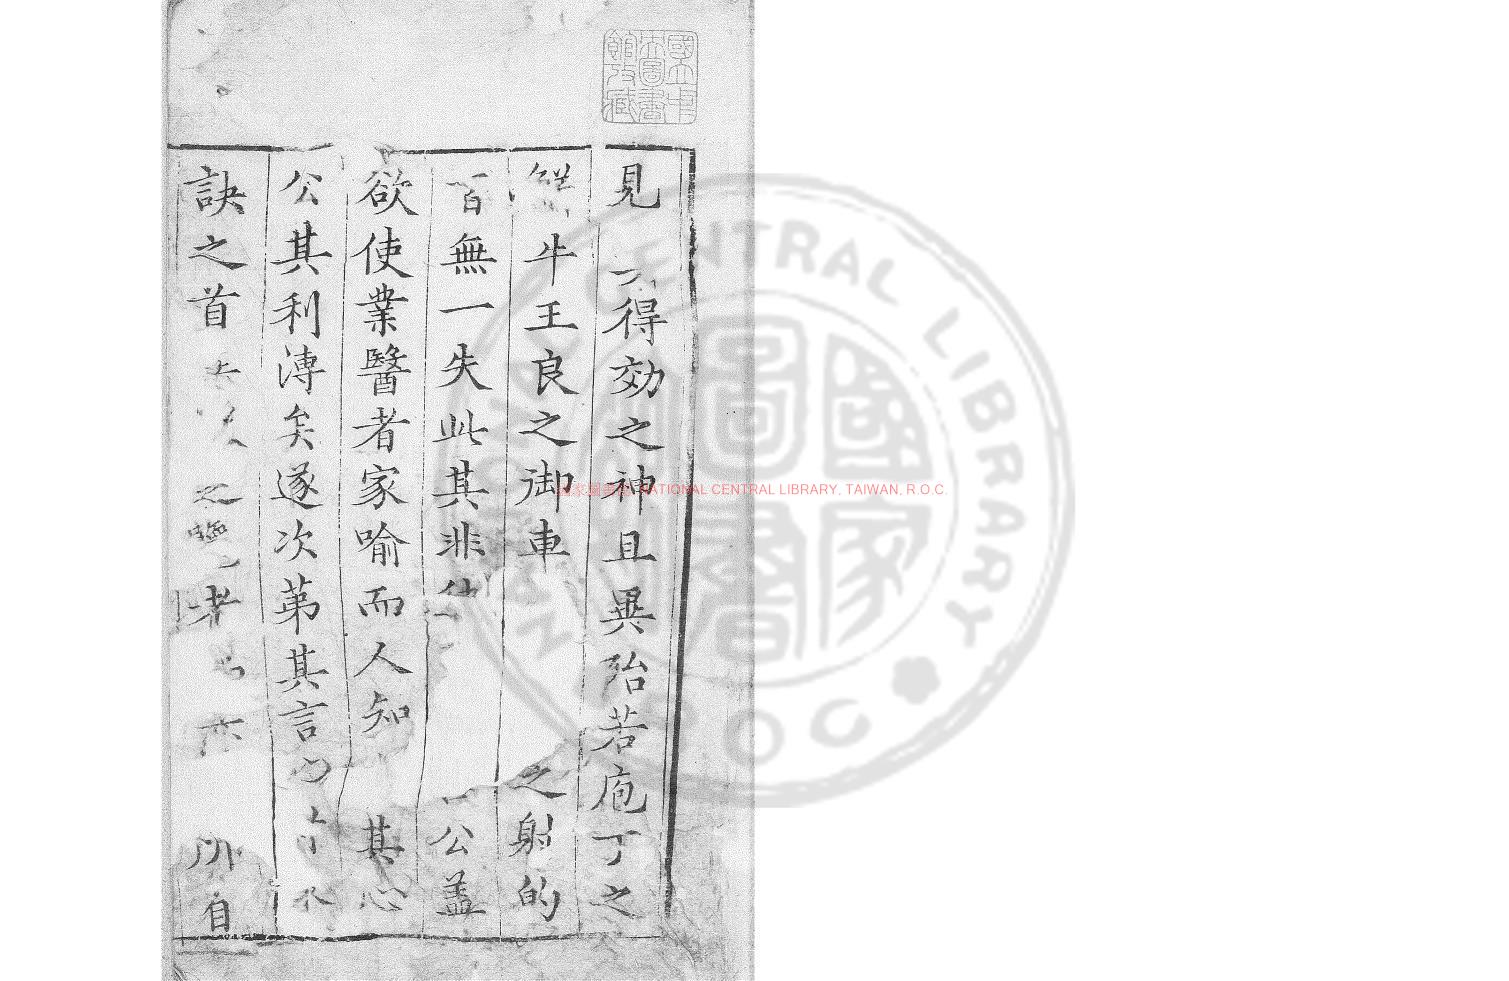 見得効之神且異殆若庖丁之
牛王良之御車之射的
百無一失此其非公蓋
欲使業醫者家喻而人知其心
公其利溥矣遂次第其言
訣之首之驗者亦所自
國立中央圖書館收藏
國家圖書館 NATIONAL CENTRAL LIBRARY, TAIWAN, R.O.C.
NATIONAL CENTRAL LIBRARY
ROC
國家圖書